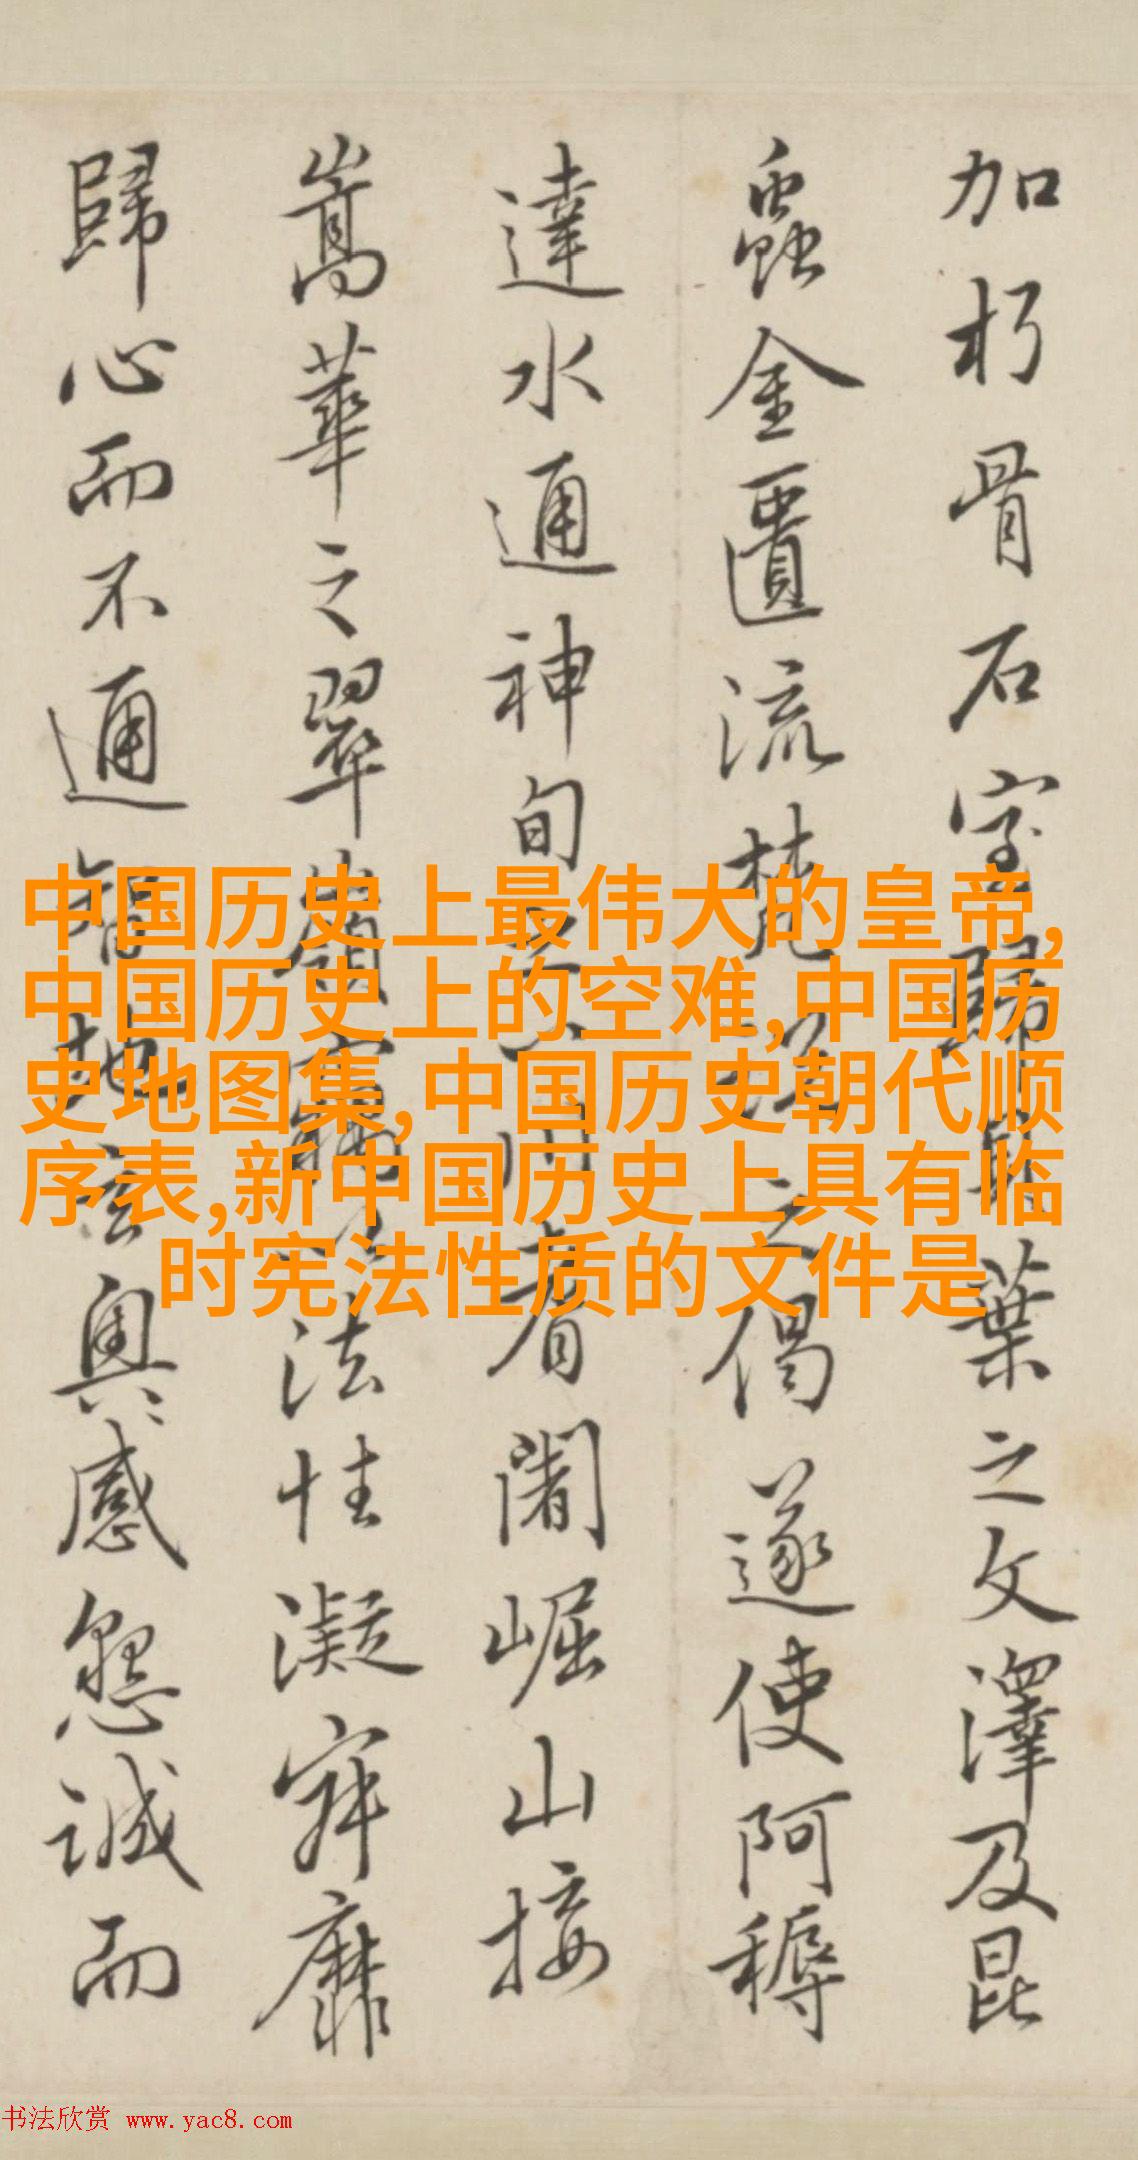 加朽骨石室歸貝葉之文澤及昆
蟲金匱流梵說之偈遂使阿耨
達水通神甸之八川耆闍崛山接
嵩華之翠嶺竊以法性凝寂靡
歸心而不通智地玄奧感懇誠而
中国历史上最伟大的皇帝,
中国历史上的空难,中国历
史地图集,中国历史朝代顺
序表,新中国历史上具有临
时宪法性质的文件是
书法欣赏 www.yac8.com